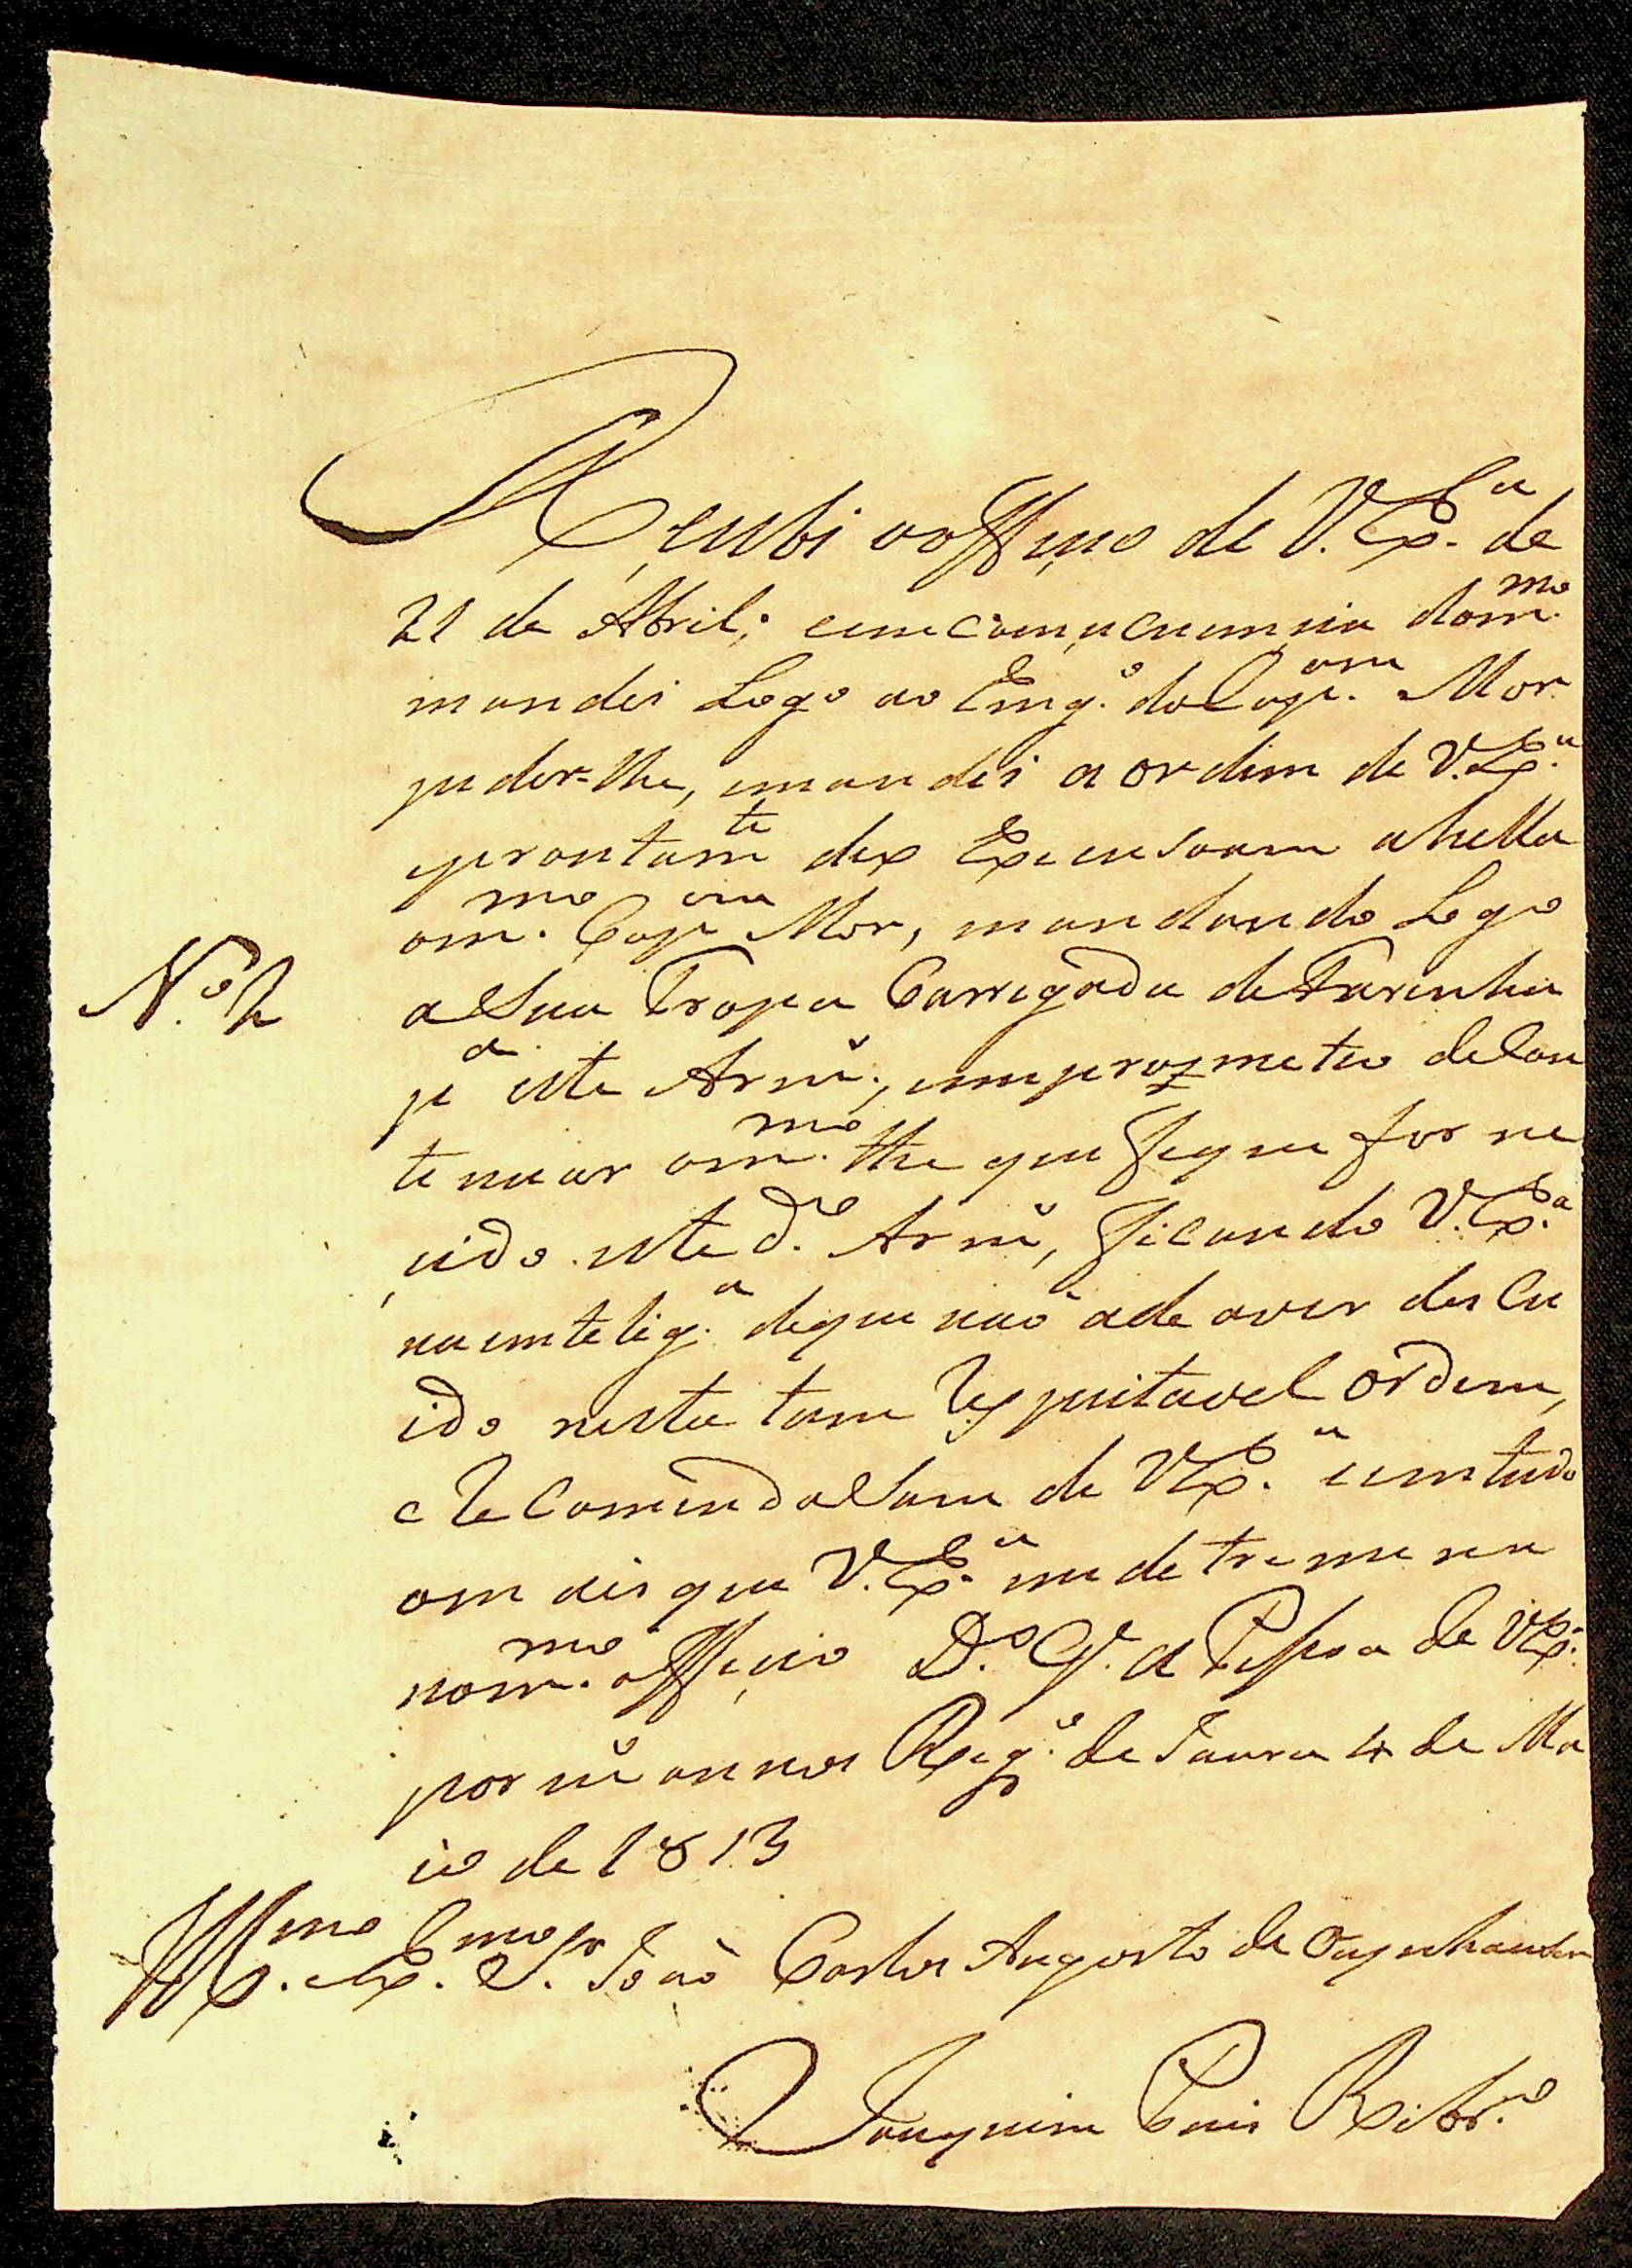 Reçebi o offiçio de V. Ex.ᶜⁱᵃ de
21 de Abril; eemComçecuençia dom.ᵐᵒ
mandei Logo ao Eng.º do Cap.ᵃᵐ Mor
pider-lhe, emandei a ordim de V. Ex.ᵃ
eprontamᵗᵉ dex Execusaam a hella
om.ᵐᵒ Capᵃᵐ Mor, mandando Logo
a Sua Tropa Carregada de Farinha
N.º 2
pᵃ este Armᵐ., emeprometeo de Con
tenuar om.ᵐᵒ the que fique forne
çido este d.º Armᵐ, ficando V. Ex.ᵃ
na entelig.ᵃ deque não ade aver des Cu
ido nesta tam Respeitavel ordem,
e ReComendaSam de V Ex.ᵃ eemtudo
omais que V. Ex.ᵃ me detremena
nom.ᵐᵒ offiçio D.ˢ G.ᵉ a Pessoa de V Ex.ᵃ
por m.ˢ annos Reg.º de Jauru 4 de Ma
io de 1813
Ill.ᵐᵒ Ex.ᵐᵒ S.ʳ João Carlos Augosto de Oeynhausen
Joaquim Luis Ribr.º